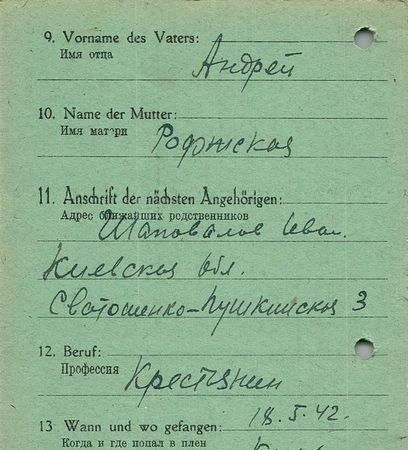 9. Vorname des Vaters:
Имя отца
Андрей
10. Name der Mutter:
Имя матери
11. Anschrift der nächsten Angehörigen:
Адрес ближайших родственников
Шаповалов Иван.
Киевская обл.
Пушкинская 3
12. Beruf:
Профессия
Крестянин
13 Wann und wo gefangen: 18.5.42.
Когда и где попал в плен